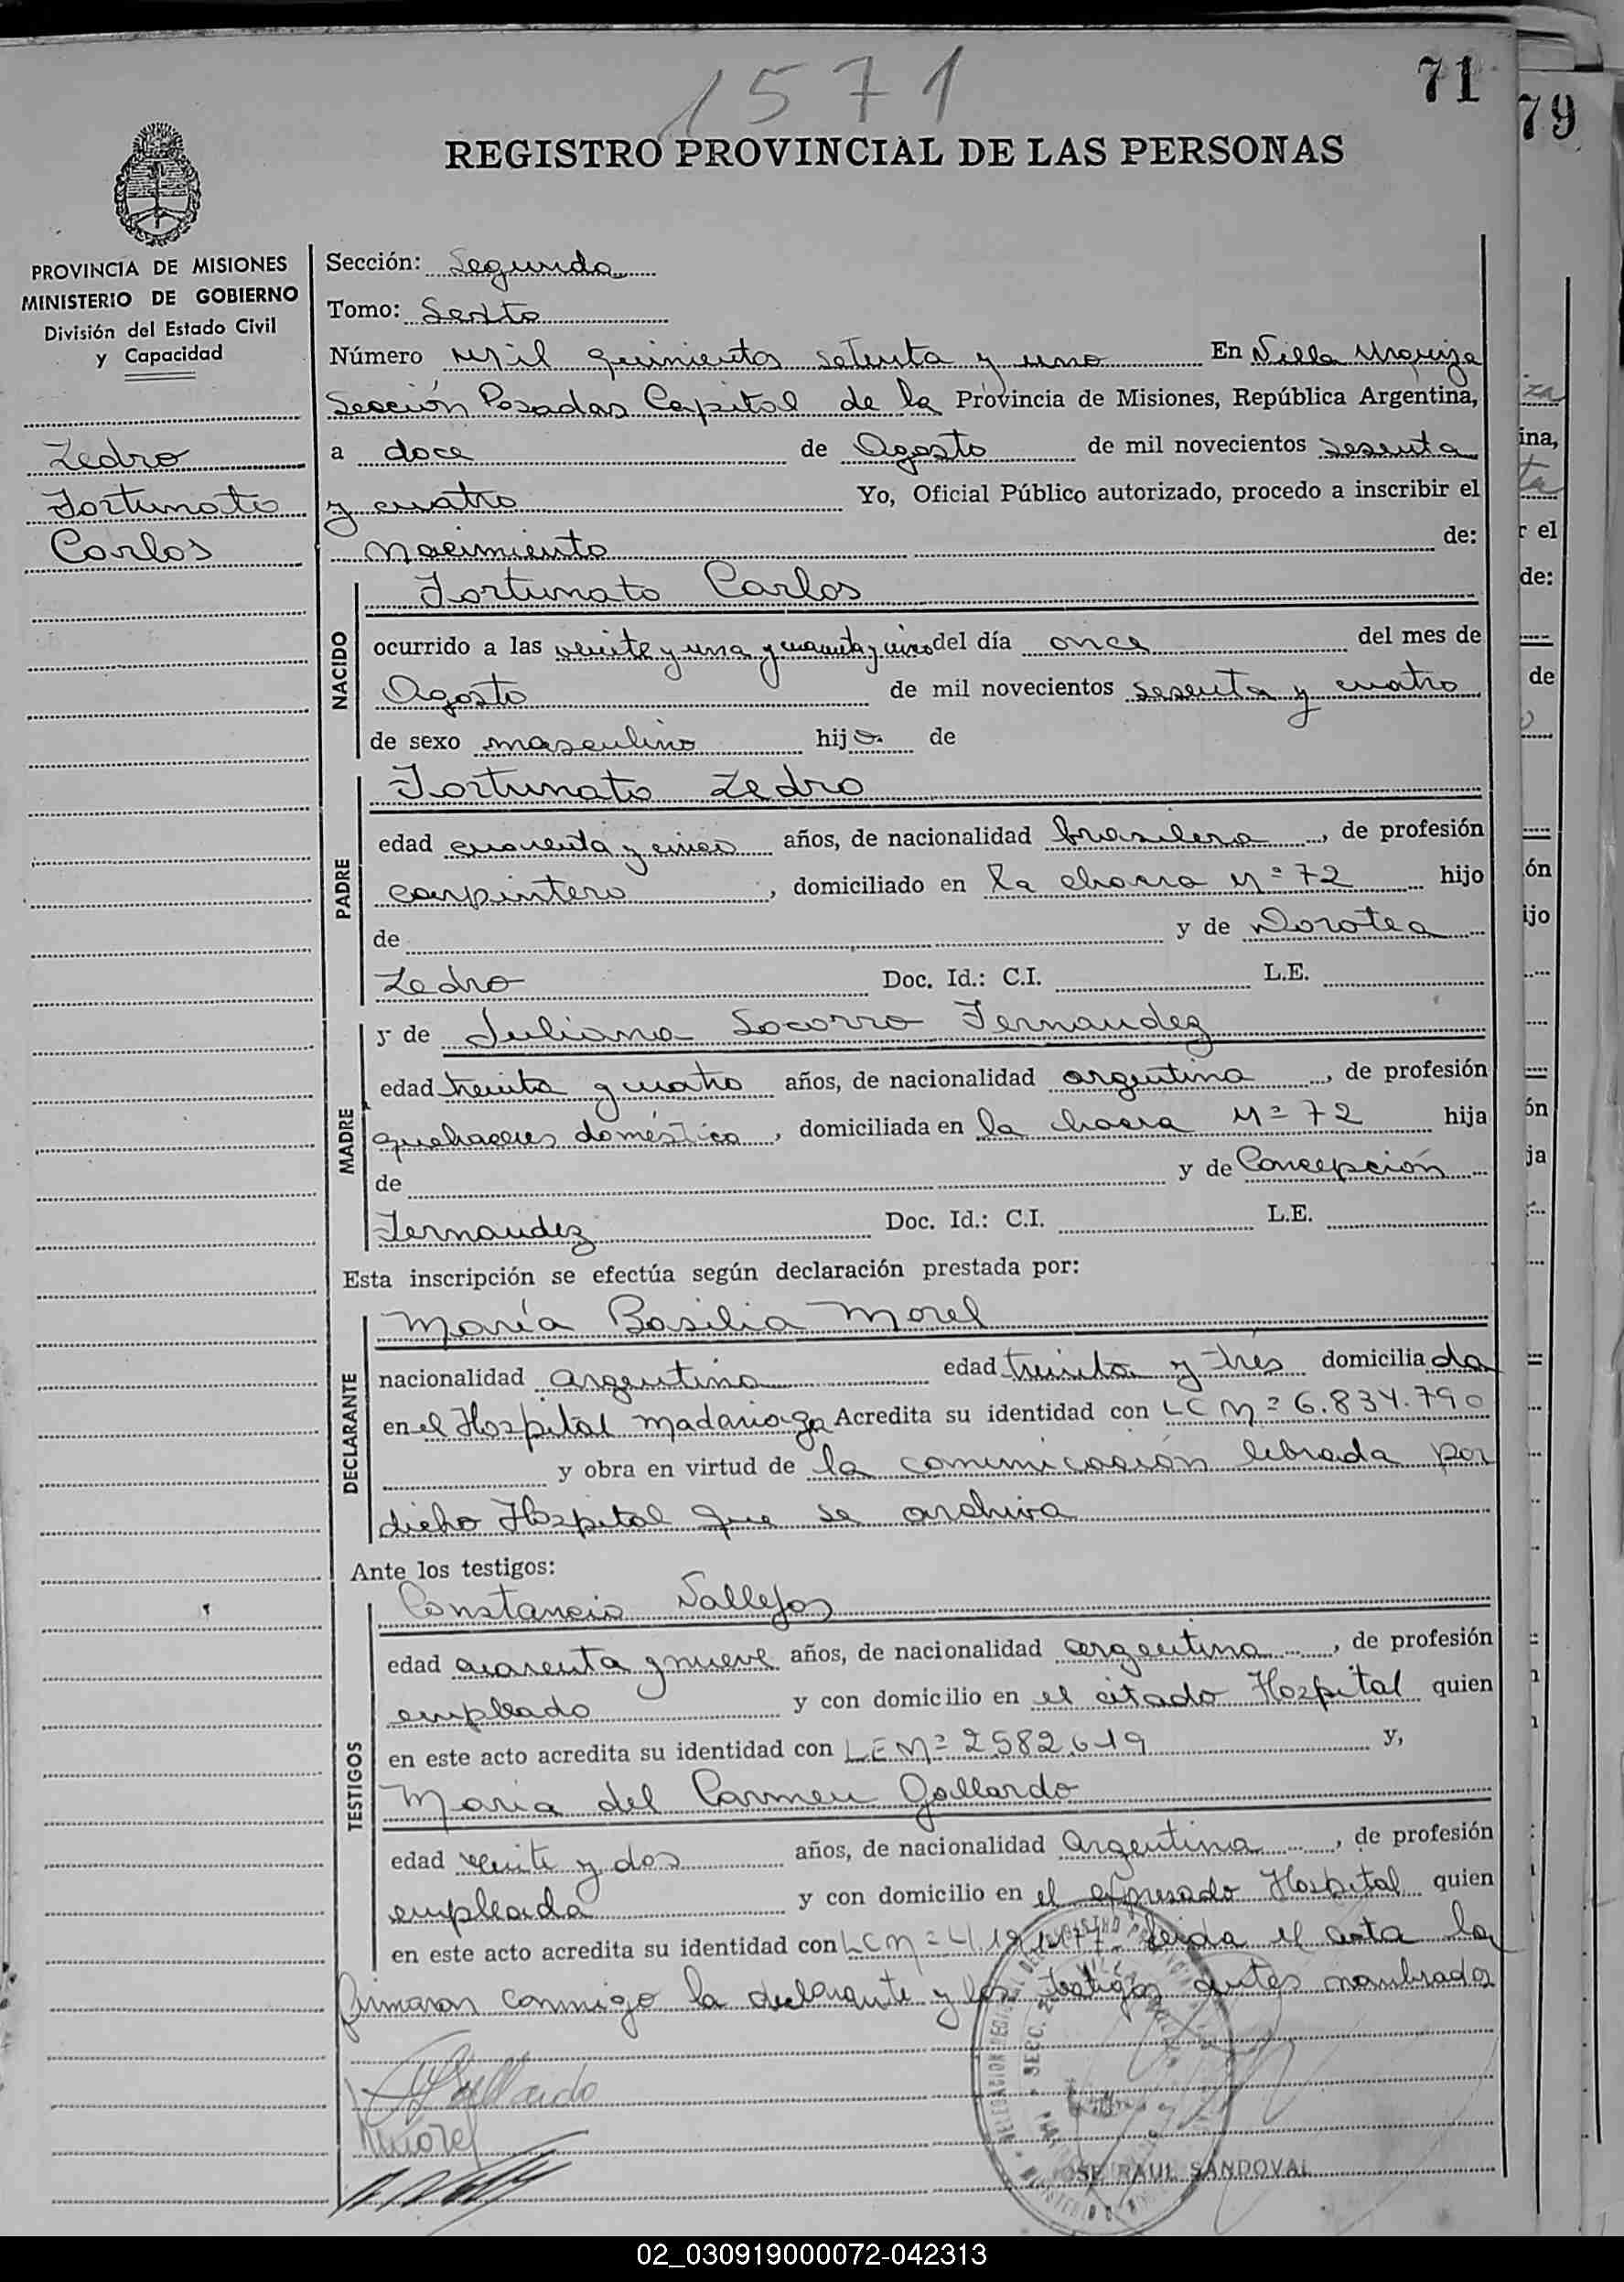 1571
71
79
REGISTRO PROVINCIAL DE LAS PERSONAS
PROVINCIA DE MISIONES
MINISTERIO DE GOBIERNO
División del Estado Civil
y Capacidad
Zedro
Fortunato
Carlos
Sección: Segunda
Tomo: Sexto
Número mil quinientos setenta y uno En Villa Urquiza
Sección Posadas Capital de la Provincia de Misiones, República Argentina,
a doce de Agosto de mil novecientos sesenta
y cuatro Yo, Oficial Público autorizado, procedo a inscribir el
nacimiento de:
NACIDO
Fortunato Carlos
ocurrido a las veinte y una y cuarenta y cinco del día once del mes de
Agosto de mil novecientos sesenta y cuatro
de sexo masculino hijo de
PADRE
Fortunato Zedro
edad cuarenta y cinco años, de nacionalidad brasilera, de profesión
carpintero, domiciliado en la chacra Nº 72 hijo
de y de Dorotea
Zedro Doc. Id.: C.I. L.E.
MADRE
y de Juliana Socorro Fernandez
edad treinta y cuatro años, de nacionalidad argentina, de profesión
quehaceres doméstico, domiciliada en la chacra Nº 72 hija
de y de Concepción
Fernandez Doc. Id.: C.I. L.E.
Esta inscripción se efectúa según declaración prestada por:
DECLARANTE
María Basilia Morel
nacionalidad argentina edad treinta y tres domiciliada
en el Hospital Madariaga Acredita su identidad con LC Nº 6.834.790
y obra en virtud de la comunicación librada por
dicho Hospital que se archiva
Ante los testigos:
TESTIGOS
Constancio Vallejos
edad cuarenta y nueve años, de nacionalidad argentina, de profesión
empleado y con domicilio en el citado Hospital quien
en este acto acredita su identidad con LE Nº 2582619 y,
María del Carmen Gallardo
edad veinte y dos años, de nacionalidad argentina, de profesión
empleada y con domicilio en el expresado Hospital quien
en este acto acredita su identidad con LC Nº leida el acta la
firmaran conmigo la declarante y los testigos antes nombrados
Gallardo
Morel
JOSE RAUL SANDOVAL
02_030919000072-042313